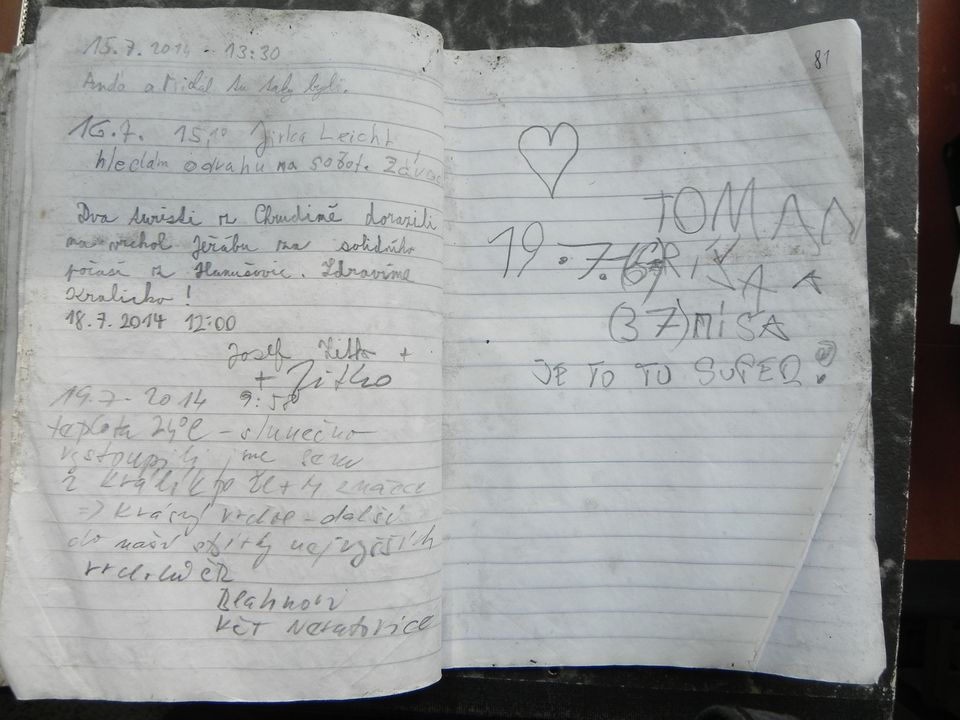 15.7.2014 - 13:30
Anda a Michal su taky byli.
16.7. 15,10 Jirka Leicht,
hledám odvahu na sobot. Závod
Dva turisti z Chrudimě dorazili
na vrchol Jeřábu za solidního
počasí z Hanušovic. Zdravíme
Kralicko!
18.7.2014 12:00
Josef +
+ Jitka
19.7.2014 9:50
teplota 24°C - slunečno
vystoupili jsme sem
z Králík po žl + M značce
=> krásný vrchol - další
do naší sbírky nejvyšších
vrcholů ČR
Blahnovi
KČT Neratovice
81
TOMAN
19.7.
(37) MÍSA
JE TO TU SUPER!